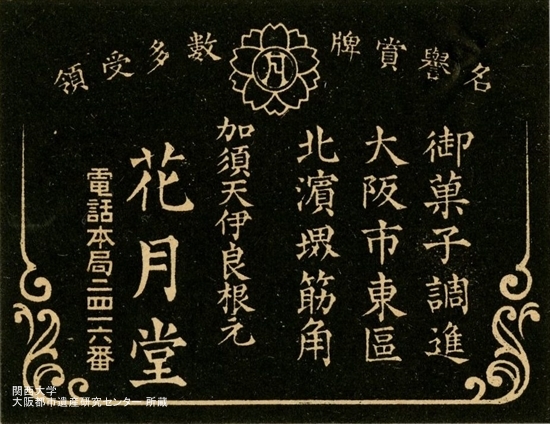 名譽賞牌
数多受領
月
御菓子調進
大阪市東區
北濱堺筋角
加須天伊良根元
花月堂
電話本局二四一六番
関西大学
大阪都市遺産研究センター 所蔵